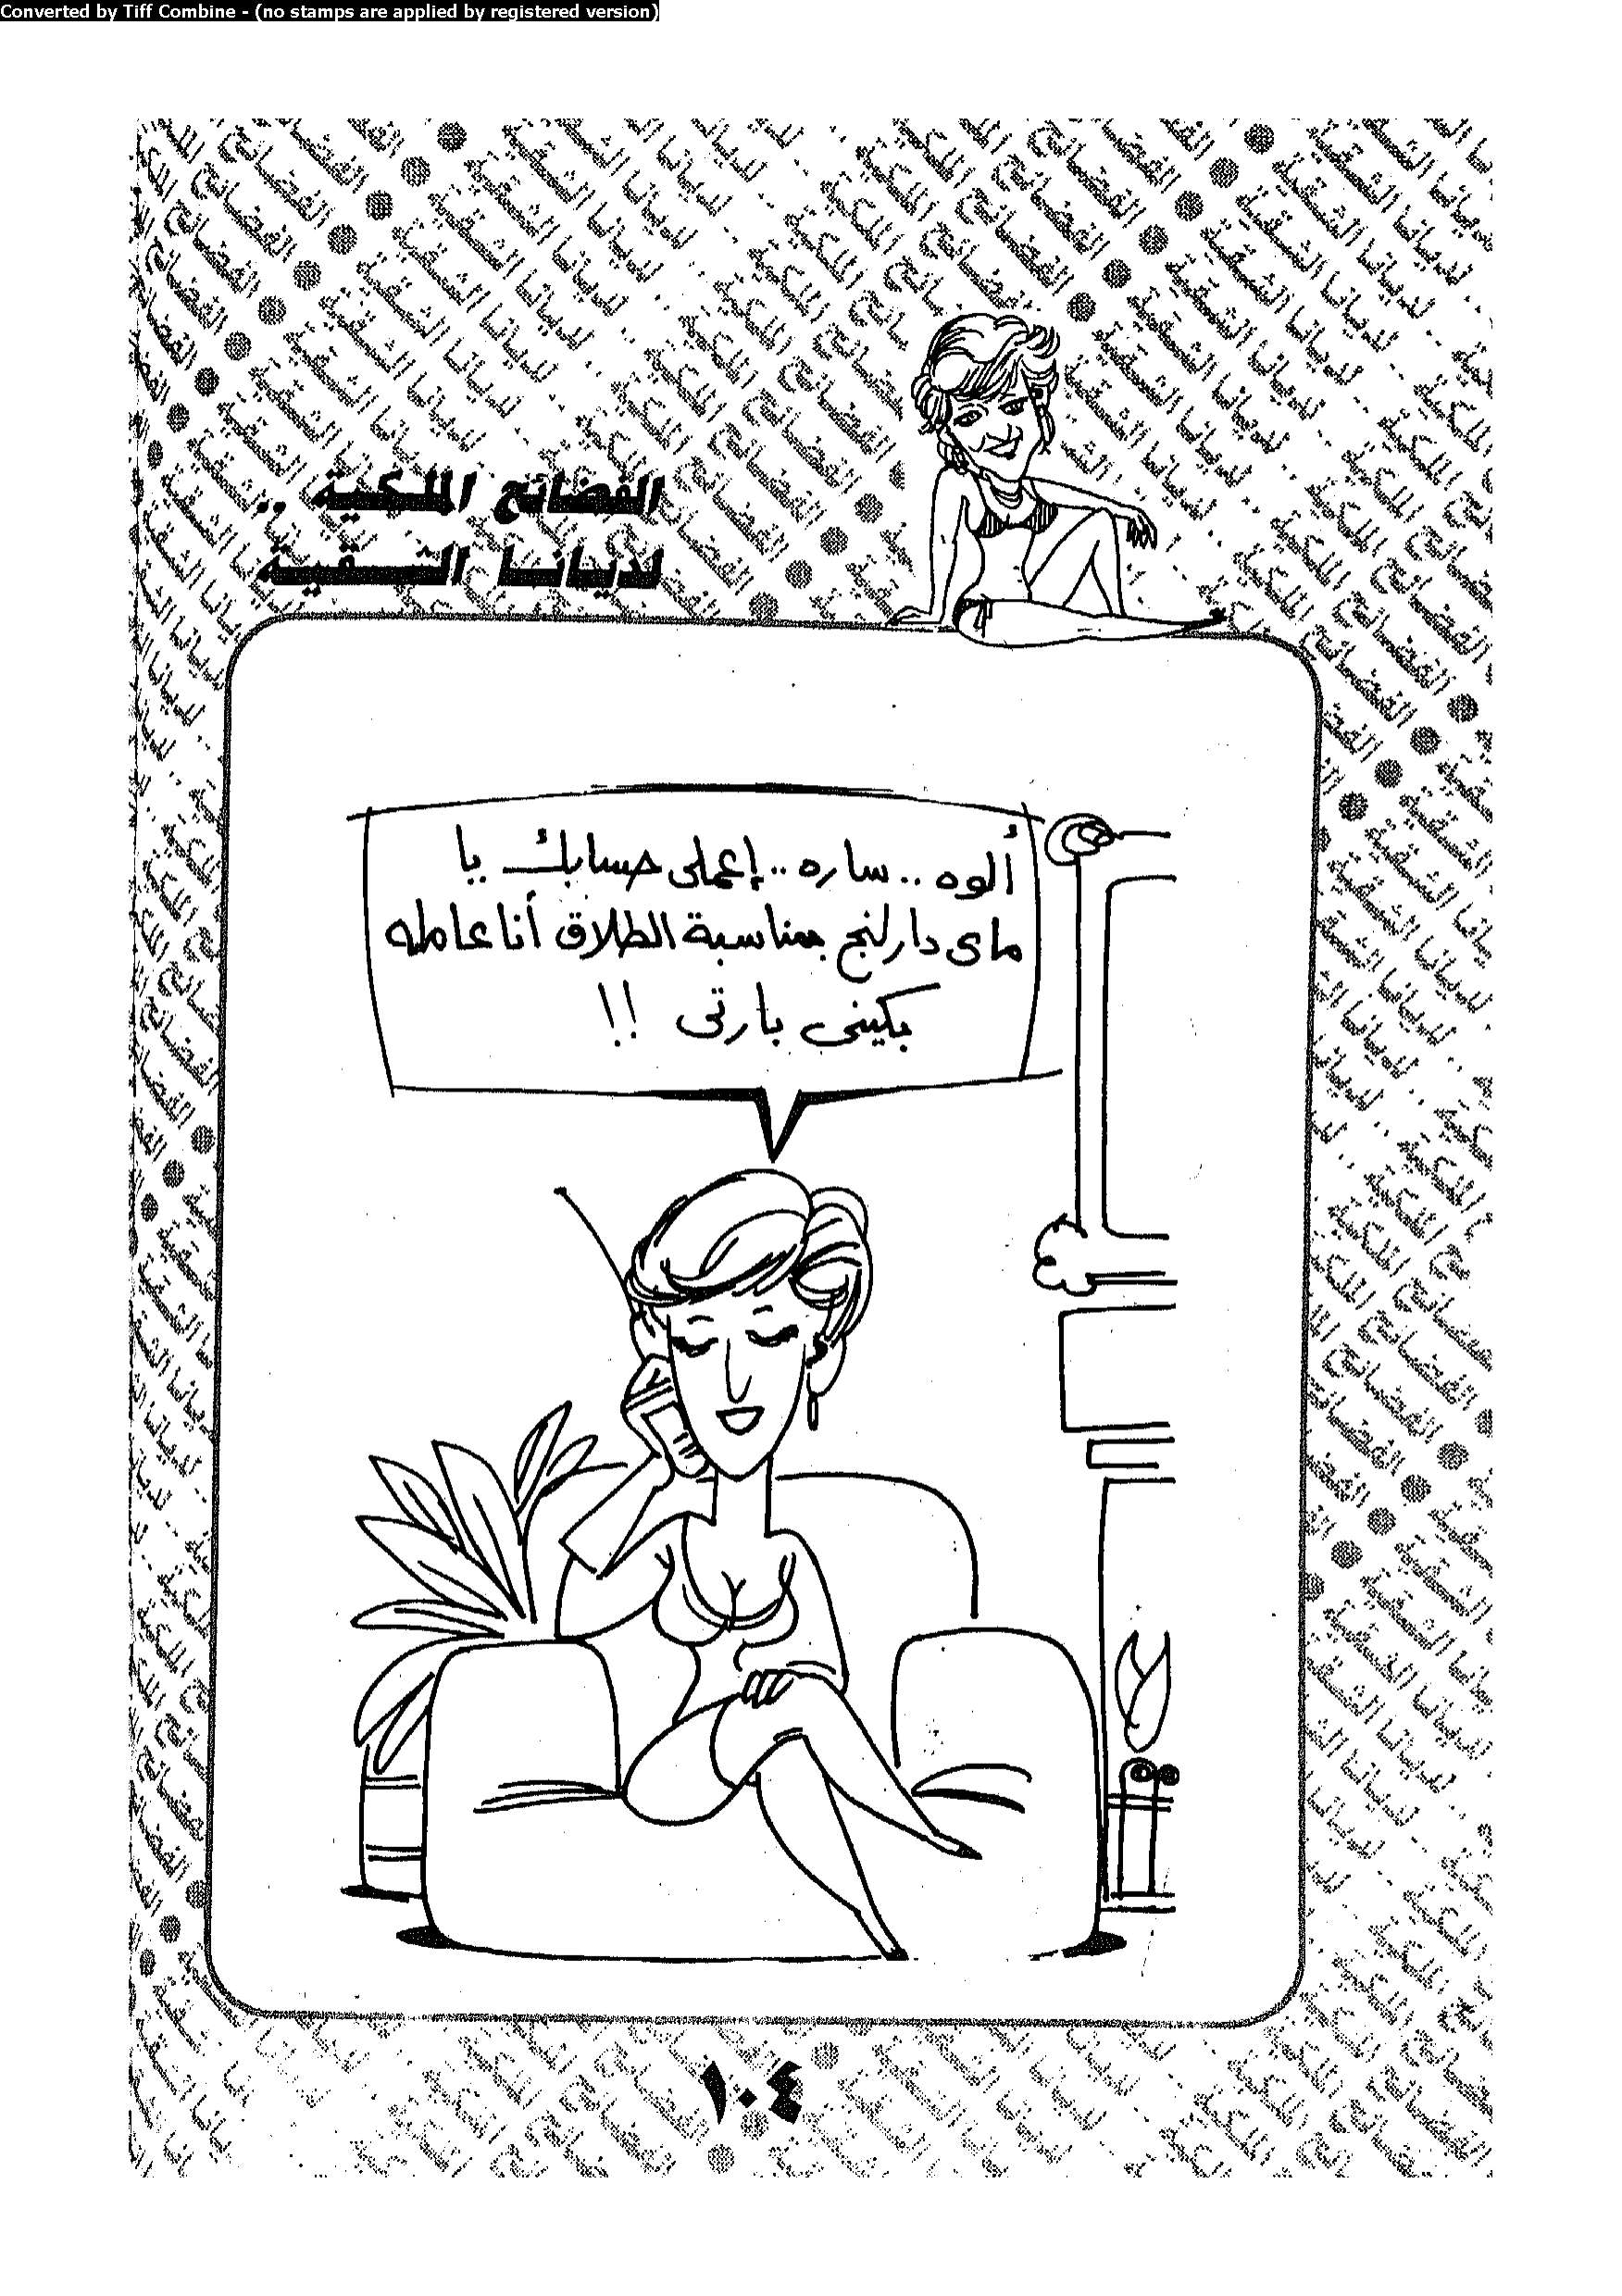 Converted by Tiff Combine - (no stamps are applied by registered version)
الفضائح الملكية ..
لديانا الشقية
ألوه .. ساره .. إعملى حسابك يا
ماى دارلنج بمناسبة الطلاق أنا عامله
بكينى بارتى !!
١٠٤